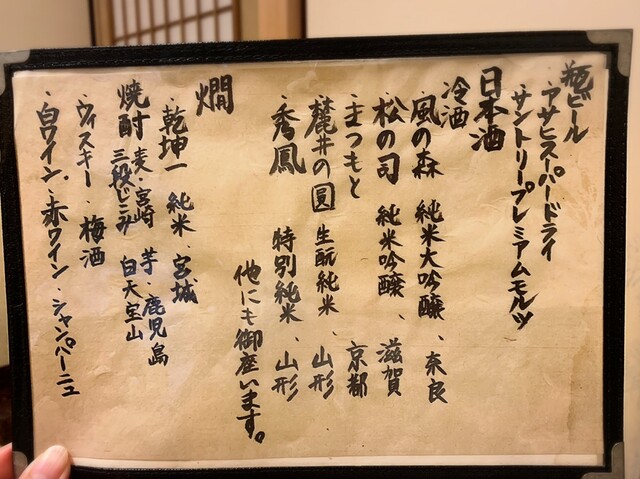 瓶ビール
・アサヒスーパードライ
サントリープレミアムモルツ
日本酒
冷酒
・風の森 純米大吟醸、奈良
・松の司 純米吟醸、滋賀
・まつもと 京都
・麓井の圓 生酛純米、山形
・秀鳳 特別純米、山形
他にも御座います。
燗
・乾坤一 純米、宮城
焼酎 麦・宮崎 芋・鹿児島
白天宝山
・ウィスキー・梅酒
・白ワイン・赤ワイン・シャンパーニュ